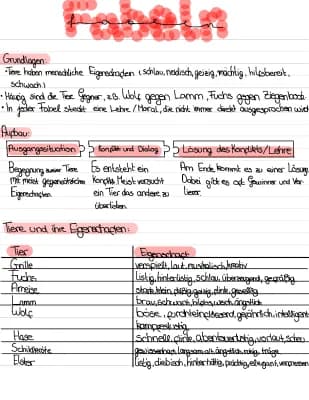 Fabeln
Grundlagen:
• Tiere haben menschliche Eigenschaften (schlau, neidisch, geizig, mächtig, hilfsbereit,
schwach)
• Häufig sind die Tiere Gegner, z.B. Wolf gegen Lamm, Fuchs gegen Ziegenbock
• In jeder Fabel steckt eine Lehre/Moral, die nicht immer direkt ausgesprochen wird
Aufbau:
Ausgangssituation Konflikt und Dialog Lösung des Konflikts/Lehre
Begegnung zweier Tiere Es entsteht ein Am Ende kommt es zu einer Lösung
mit meist gegensätzliche Konflikt. Meist versucht Dabei gibt es oft Gewinner und Ver-
Eigenschaften. ein Tier das andere zu lierer.
überlisten
Tiere und ihre Eigenschaften:
Tier Eigenschaft
Grille verspielt, laut, musikalisch, kreativ
Fuchs listig, hinterlistig, schlau, überzeugend, gefräßig
Ameise stark, klein, fleißig, geizig, flink, gesellig
Lamm brav, schwach, hilflos, weich, ängstlich
Wolf böse, furchteinflößend, gefährlich, intelligent
Hase schnell, flink, abenteuerlustig, vorlaut, scheu
Schildkröte langsam, alt, ängstlich, träge
Elster listig, diebisch, hinterhältig, prächtig, elegant, vermessen